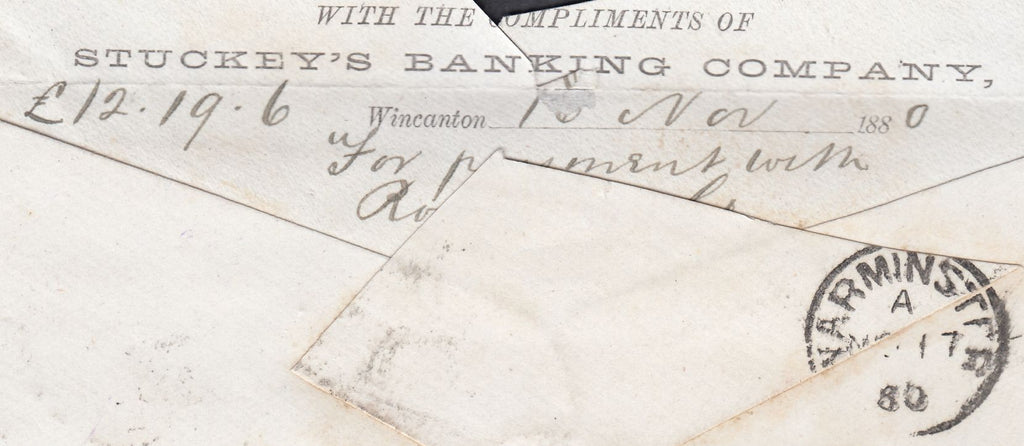 WITH THE COMPLIMENTS OF
STUCKEY'S BANKING COMPANY,
£12.19.6 Wincanton Nov 1880
For payment with
WARMINSTER
A
17
80